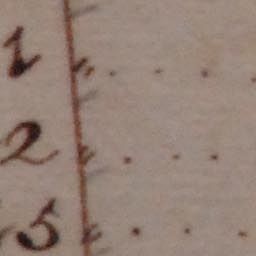 1 . . . .
2 . . .
5 . . .